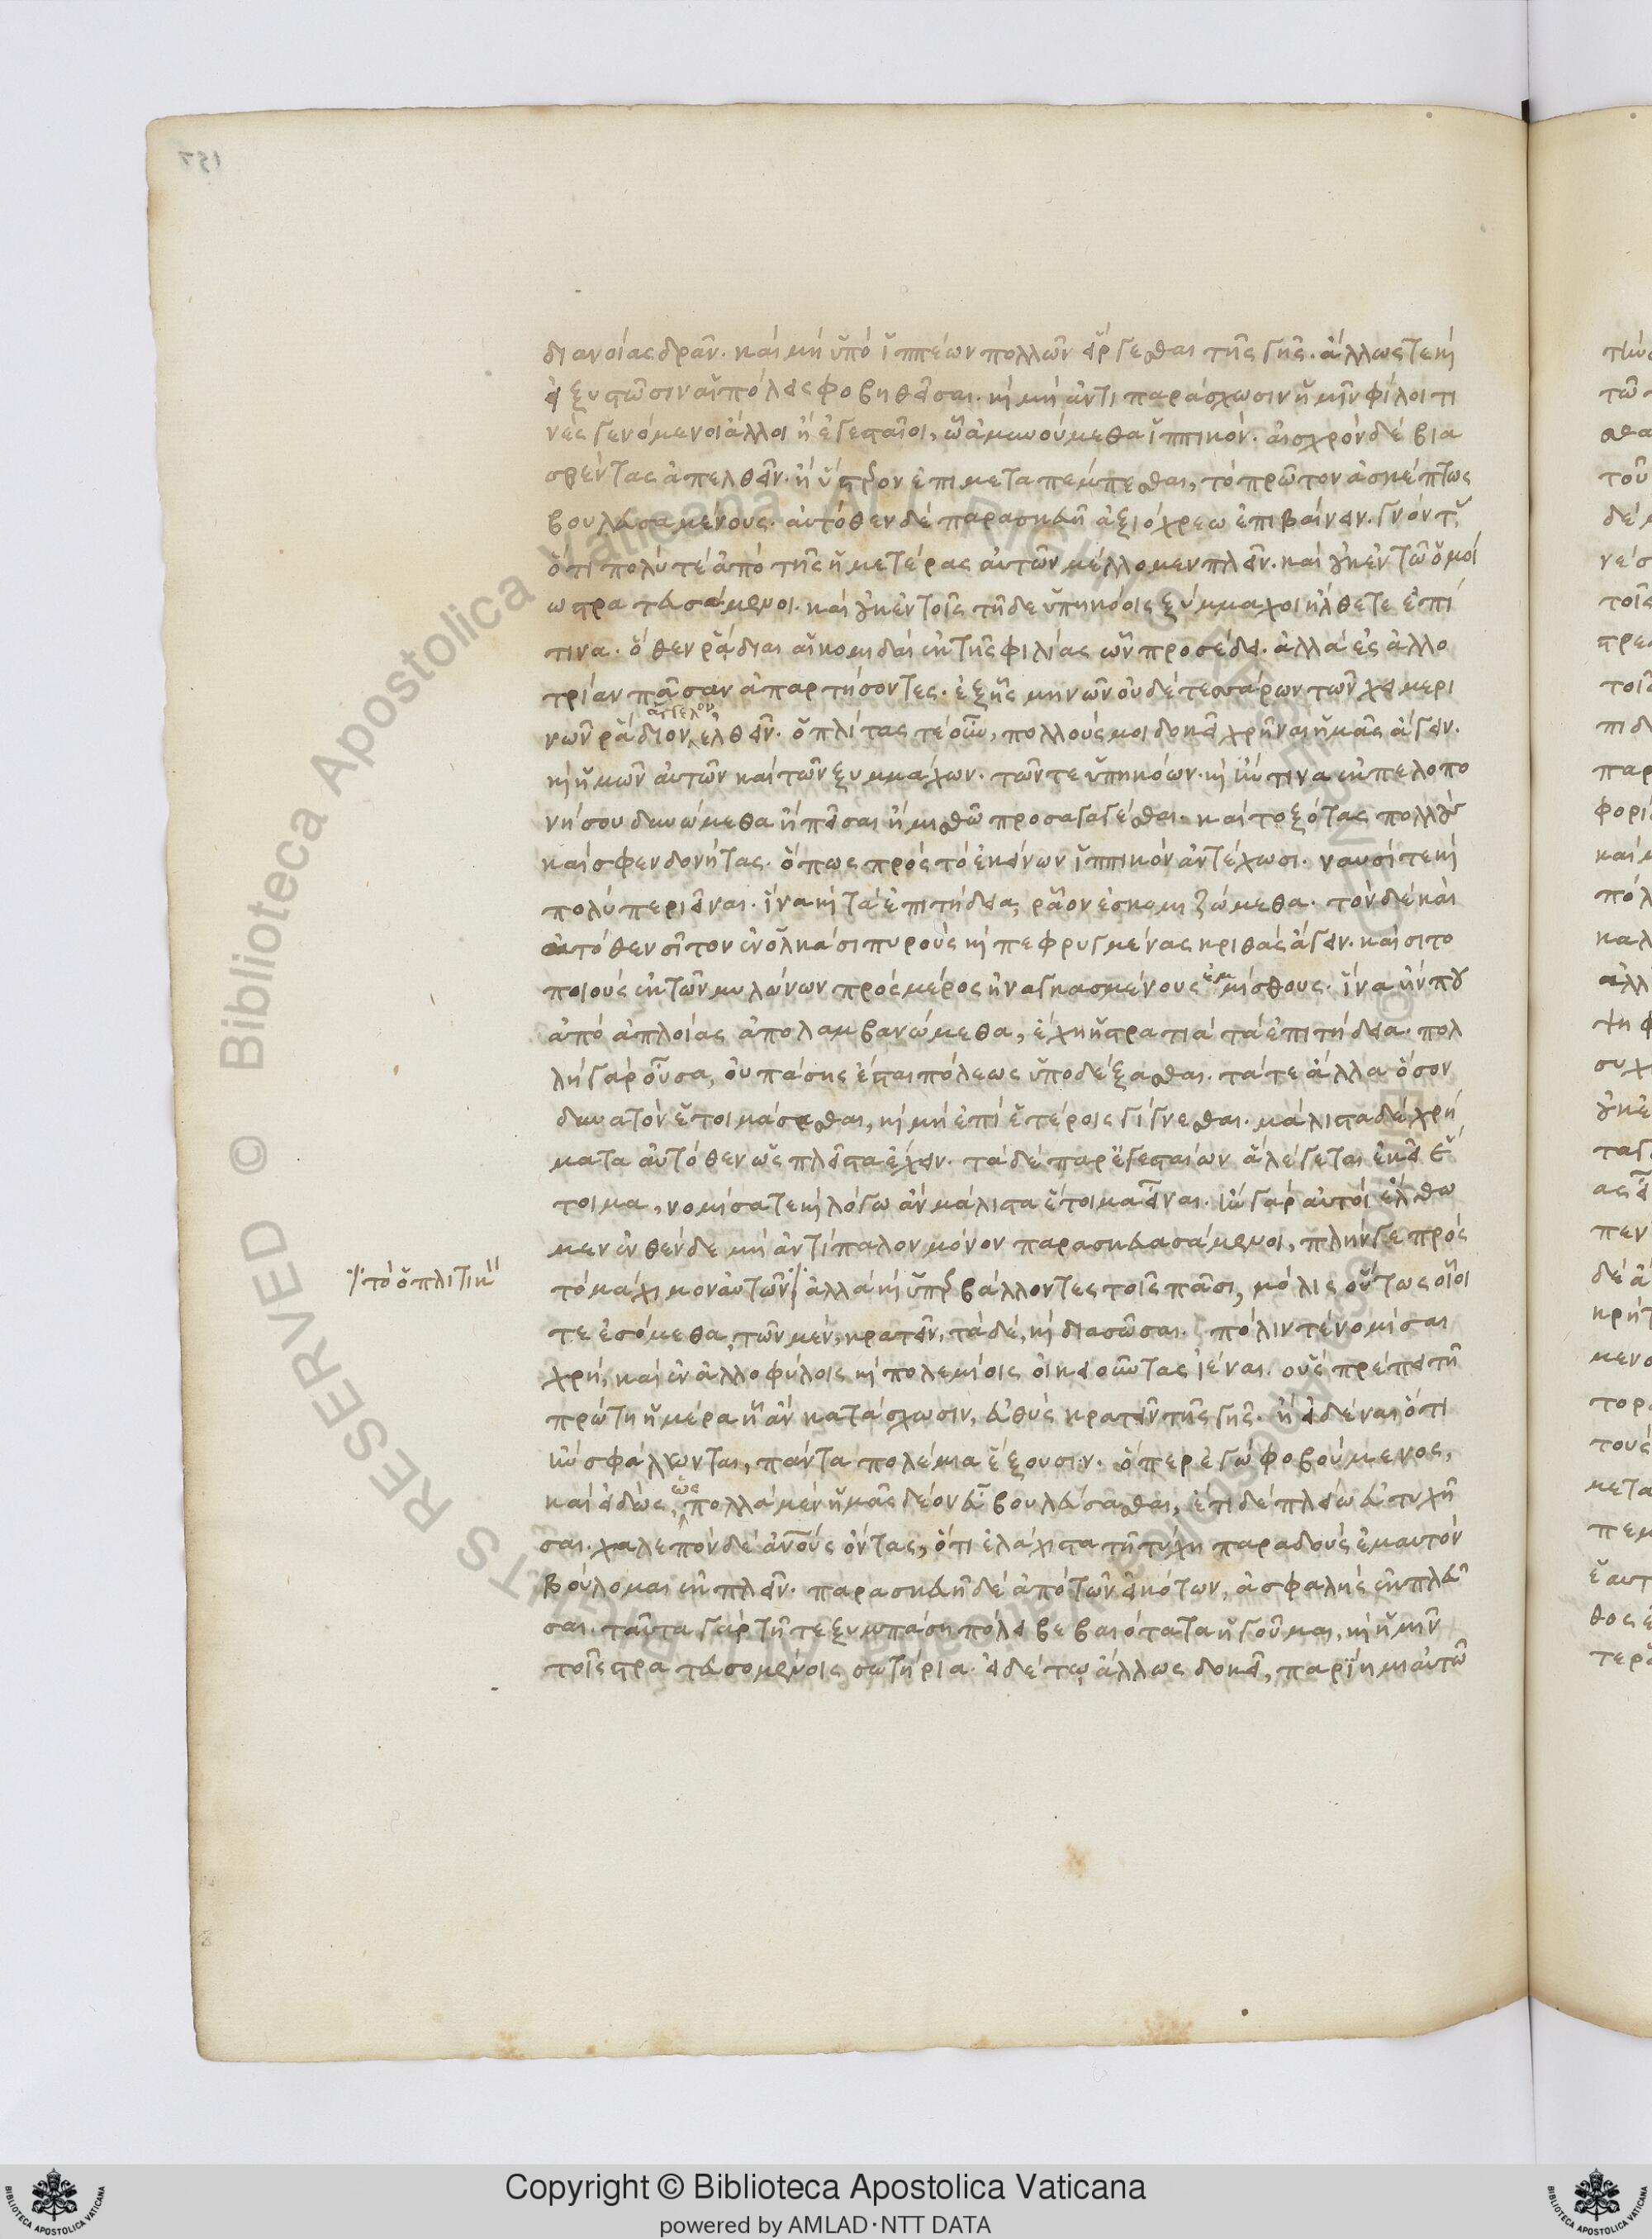 157
διανοίας δρᾶν. καὶ μὴ ὑπὸ ἱππέων πολλῶν εἴργεσθαι τῆς γῆς. ἄλλως τε καὶ
εἰ ξυστῶσιν αἱ πόλεις φοβηθεῖσαι. καὶ μὴ ἀντιπαράσχωσιν ἡμῖν φίλοι τι
νὲς γενόμενοι ἄλλοι ἢ ἐγεσταῖοι, ὧ ἀμυνούμεθα ἱππικόν. αἰσχρὸν δὲ βια
σθέντας ἀπελθεῖν. ἢ ὕστερον ἐπιμεταπέμπεσθαι, τὸ πρῶτον ἀσκέπτως
βουλευσαμένους. αὐτόθεν δὲ παρασκευῆ ἀξιόχρεω ἐπιβαίνειν. γνόντας
ὅτι πολύ τε ἀπὸ τῆς ἡμετέρας αὐτῶν μέλλομεν πλεῖν. καὶ οὐκ ἐν τῶ ὁμοί
ω στρατευσάμενοι. καὶ οὐκ ἐν τοῖς τῆδε ὑπηκόοις ξύμμαχοι ἤλθετε ἐπί
τινα. ὅθεν ῥάδιαι αἱ κομιδαὶ ἐκ τῆς φιλίας ὧν προσέδει. ἀλλὰ ἐς ἀλλο
τρίαν πᾶσαν ἀπαρτήσοντες. ἐξ ἧς μηνῶν οὐδὲ τεσσάρων τῶν χειμερι
νῶν ῥάδιον ἄγγελον ἐλθεῖν. ὁπλίτας τὲ οὖν, πολλούς μοι δοκεῖ χρῆναι ἡμᾶς ἄγειν.
καὶ ἡμῶν αὐτῶν καὶ τῶν ξυμμάχων. τῶν τε ὑπηκόων. καὶ ἤν τινα ἐκ πελοπο
νήσου δυνώμεθα ἢ πεῖσαι ἢ μισθῶ προσαγαγέσθαι. καὶ τοξότας πολλοὺς
καὶ σφενδονήτας. ὅπως πρὸς τὸ ἐκείνων ἱππικὸν ἀντέχωσι. ναυσί τε καὶ
πολὺ περιεῖναι. ἵνα καὶ τὰ ἐπιτήδεια, ῥᾶον ἐσκομιζώμεθα. τὸν δὲ καὶ
αὐτόθεν σῖτον ἐν ὁλκάσι πυροὺς καὶ πεφρυγμένας κριθὰς ἄγειν. καὶ σιτο
ποιοὺς ἐκ τῶν μυλώνων πρὸς μέρος ἠναγκασμένους ἐμμίσθους. ἵνα ἤν που
ἀπὸ ἀπλοίας ἀπολαμβανώμεθα, ἔχη ἡ στρατιὰ τὰ ἐπιτήδεια. πολ
λὴ γὰρ οὖσα, οὐ πάσης ἔσται πόλεως ὑποδέξασθαι. τά τε ἄλλα ὅσον
δυνατὸν ἑτοιμάσασθαι, καὶ μὴ ἐπὶ ἑτέροις γίγνεσθαι. μάλιστα δὲ χρή
ματα αὐτόθεν ὡς πλεῖστα ἔχειν. τὰ δὲ παρ' ἐγεσταίων ἃ λέγεται ἐκεῖ ἕ
τοιμα, νομίσατε καὶ λόγω ἂν μάλιστα ἕτοιμα εἶναι. ἢν γὰρ αὐτοὶ ἔλθω
μεν ἐνθένδε μὴ ἀντίπαλον μόνον παρασκευασάμενοι, πλήν γε πρὸς
τὸ ὁπλιτικὸν
τὸ μάχιμον αὐτῶν ἀλλὰ καὶ ὑπερβάλλοντες τοῖς πᾶσι, μόλις οὕτως οἷοί
τε ἐσόμεθα, τῶν μὲν, κρατεῖν, τὰ δὲ, καὶ διασῶσαι. πόλιν τὲ νομίσαι
χρὴ, καὶ ἐν ἀλλοφύλοις καὶ πολεμίοις οἰκειοῦντας ἰέναι. οὓς πρέπει τῆ
πρώτη ἡμέρα ἧ ἂν κατάσχωσιν, εὐθὺς κρατεῖν τῆς γῆς. ἢ εἰδέναι ὅτι
ἢν σφάλλωνται, πάντα πολέμια ἕξουσιν. ὅπερ ἐγὼ φοβούμενος,
καὶ εἰδὼς, ὡς πολλὰ μὲν ἡμᾶς δέον εὖ βουλεύσασθαι, ἔτι δὲ πλείω εὐτυχῆ
σαι. χαλεπὸν δὲ ἀνους ὄντας, ὅτι ἐλάχιστα τῆ τύχη παραδοὺς ἐμαυτὸν
βούλομαι ἐκπλεῖν. παρασκευῆ δὲ ἀπὸ τῶν εἰκότων, ἀσφαλὴς ἐκπλεῦ
σαι. ταῦτα γὰρ τῆ τε ξυμπάση πόλει βεβαιότατα ἡγοῦμαι, καὶ ἡμῖν
τοῖς στρατευσομένοις σωτήρια. εἰ δέ τω ἄλλως δοκεῖ, παρίημι αὐτῶ
Copyright © Biblioteca Apostolica Vaticana
powered by AMLAD·NTT DATA